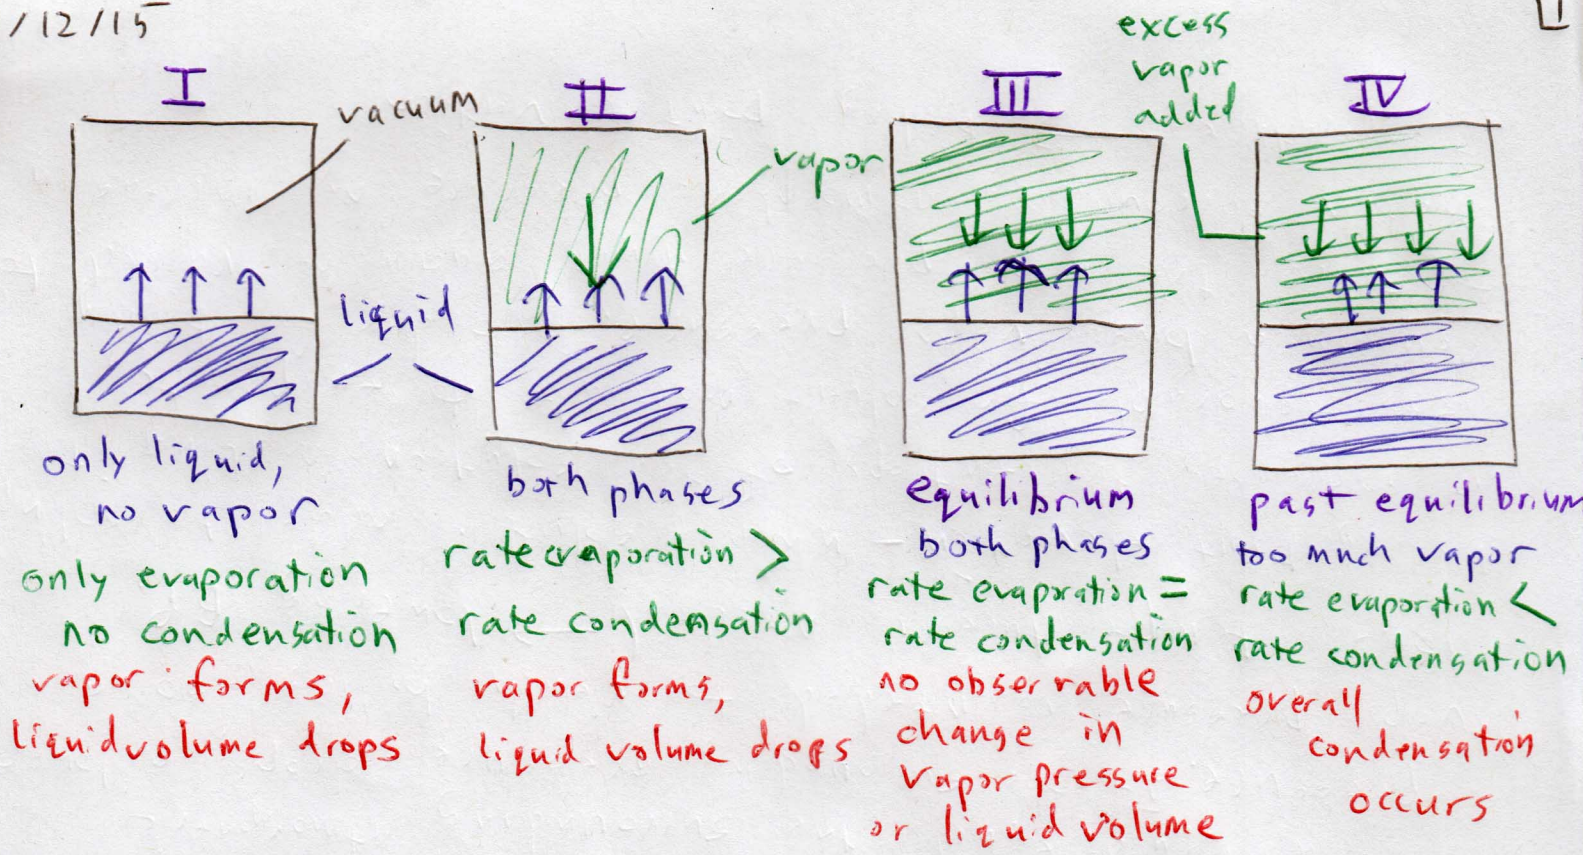 /12/15
I
vacuum
II
vapor
III
excess
vapor
added
IV
liquid
only liquid,
no vapor
only evaporation
no condensation
vapor forms,
liquid volume drops
both phases
rate evaporation >
rate condensation
vapor forms,
liquid volume drops
equilibrium
both phases
rate evaporation =
rate condensation
no observable
change in
vapor pressure
or liquid volume
past equilibrium
too much vapor
rate evaporation <
rate condensation
overall
condensation
occurs